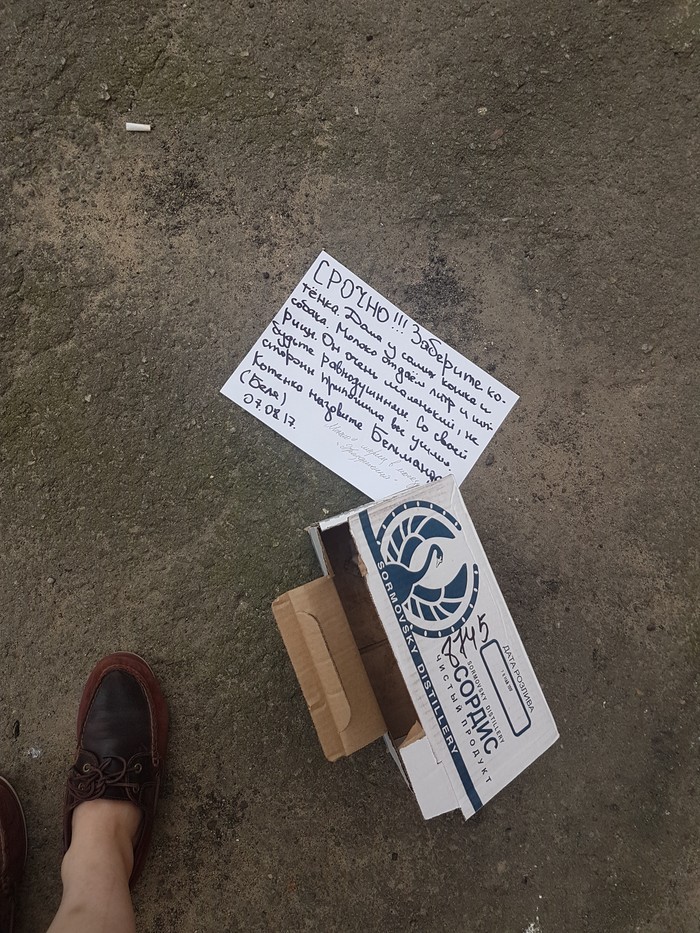 СРОЧНО!!! Заберите ко-
тёнка. Дома у самих кошка и
собака. Молоко отдаём литр и шп-
рицы. Он очень маленький, не
будьте равнодушными. Со своей
стороны
все усилия.
Котенко назовите Беньямано
(Беля)
07.08.17.
SORMOVSKY DISTILLERY
8745
СОРДИС
SORMOVSKY DISTILLERY
ЧИСТЫЙ ПРОДУКТ
ДАТА РОЗЛИВА